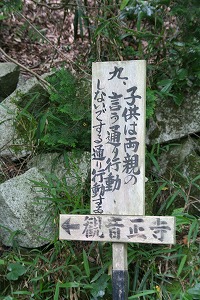 九、子供は両親の
言う通り行動、
しないでする通り行動する
←観音正寺